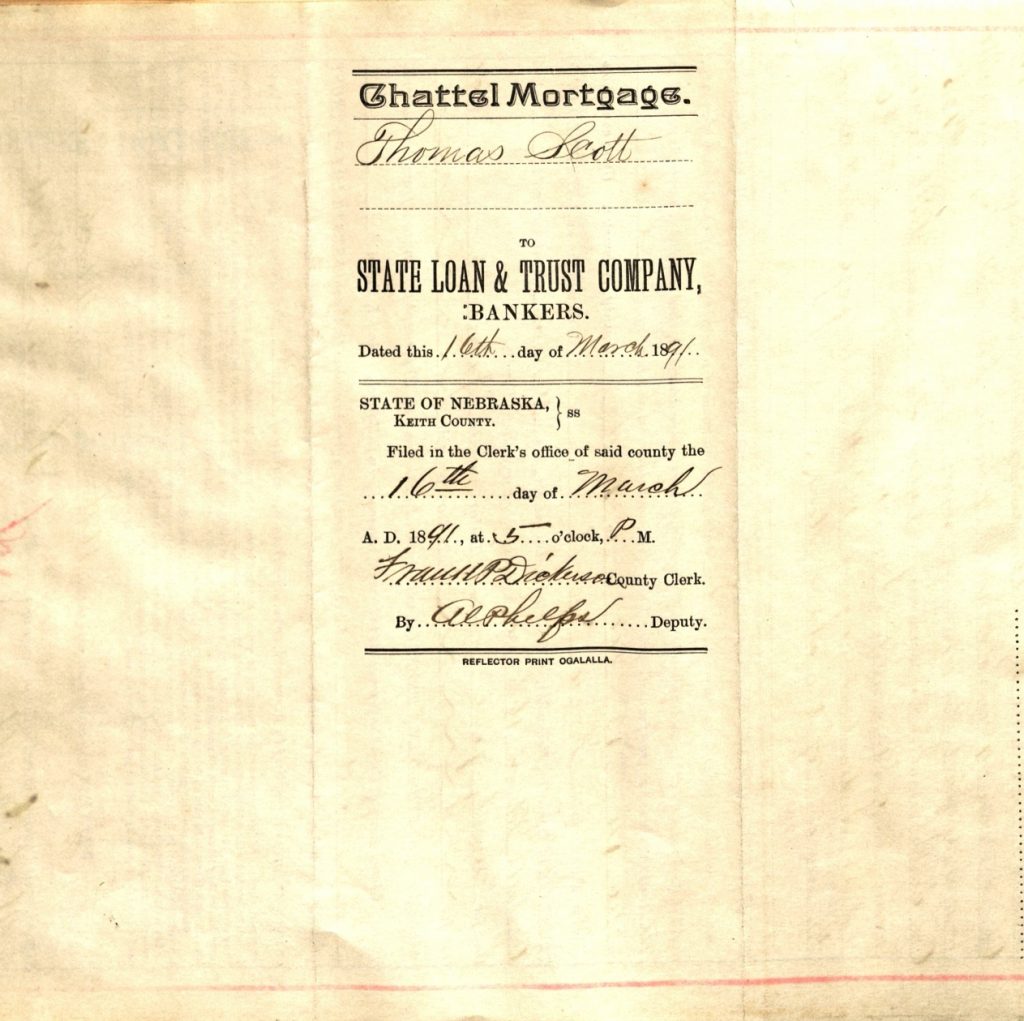 Chattel Mortgage.
Thomas Scott
TO
STATE LOAN & TRUST COMPANY,
:BANKERS.
Dated this 16th day of March 1891.
STATE OF NEBRASKA, } ss
KEITH COUNTY.
Filed in the Clerk's office of said county the
16th day of March
A. D. 1891, at 5 o'clock, P. M.
Frank P. Dickerson County Clerk.
By Al Phelps Deputy.
REFLECTOR PRINT OGALALLA.